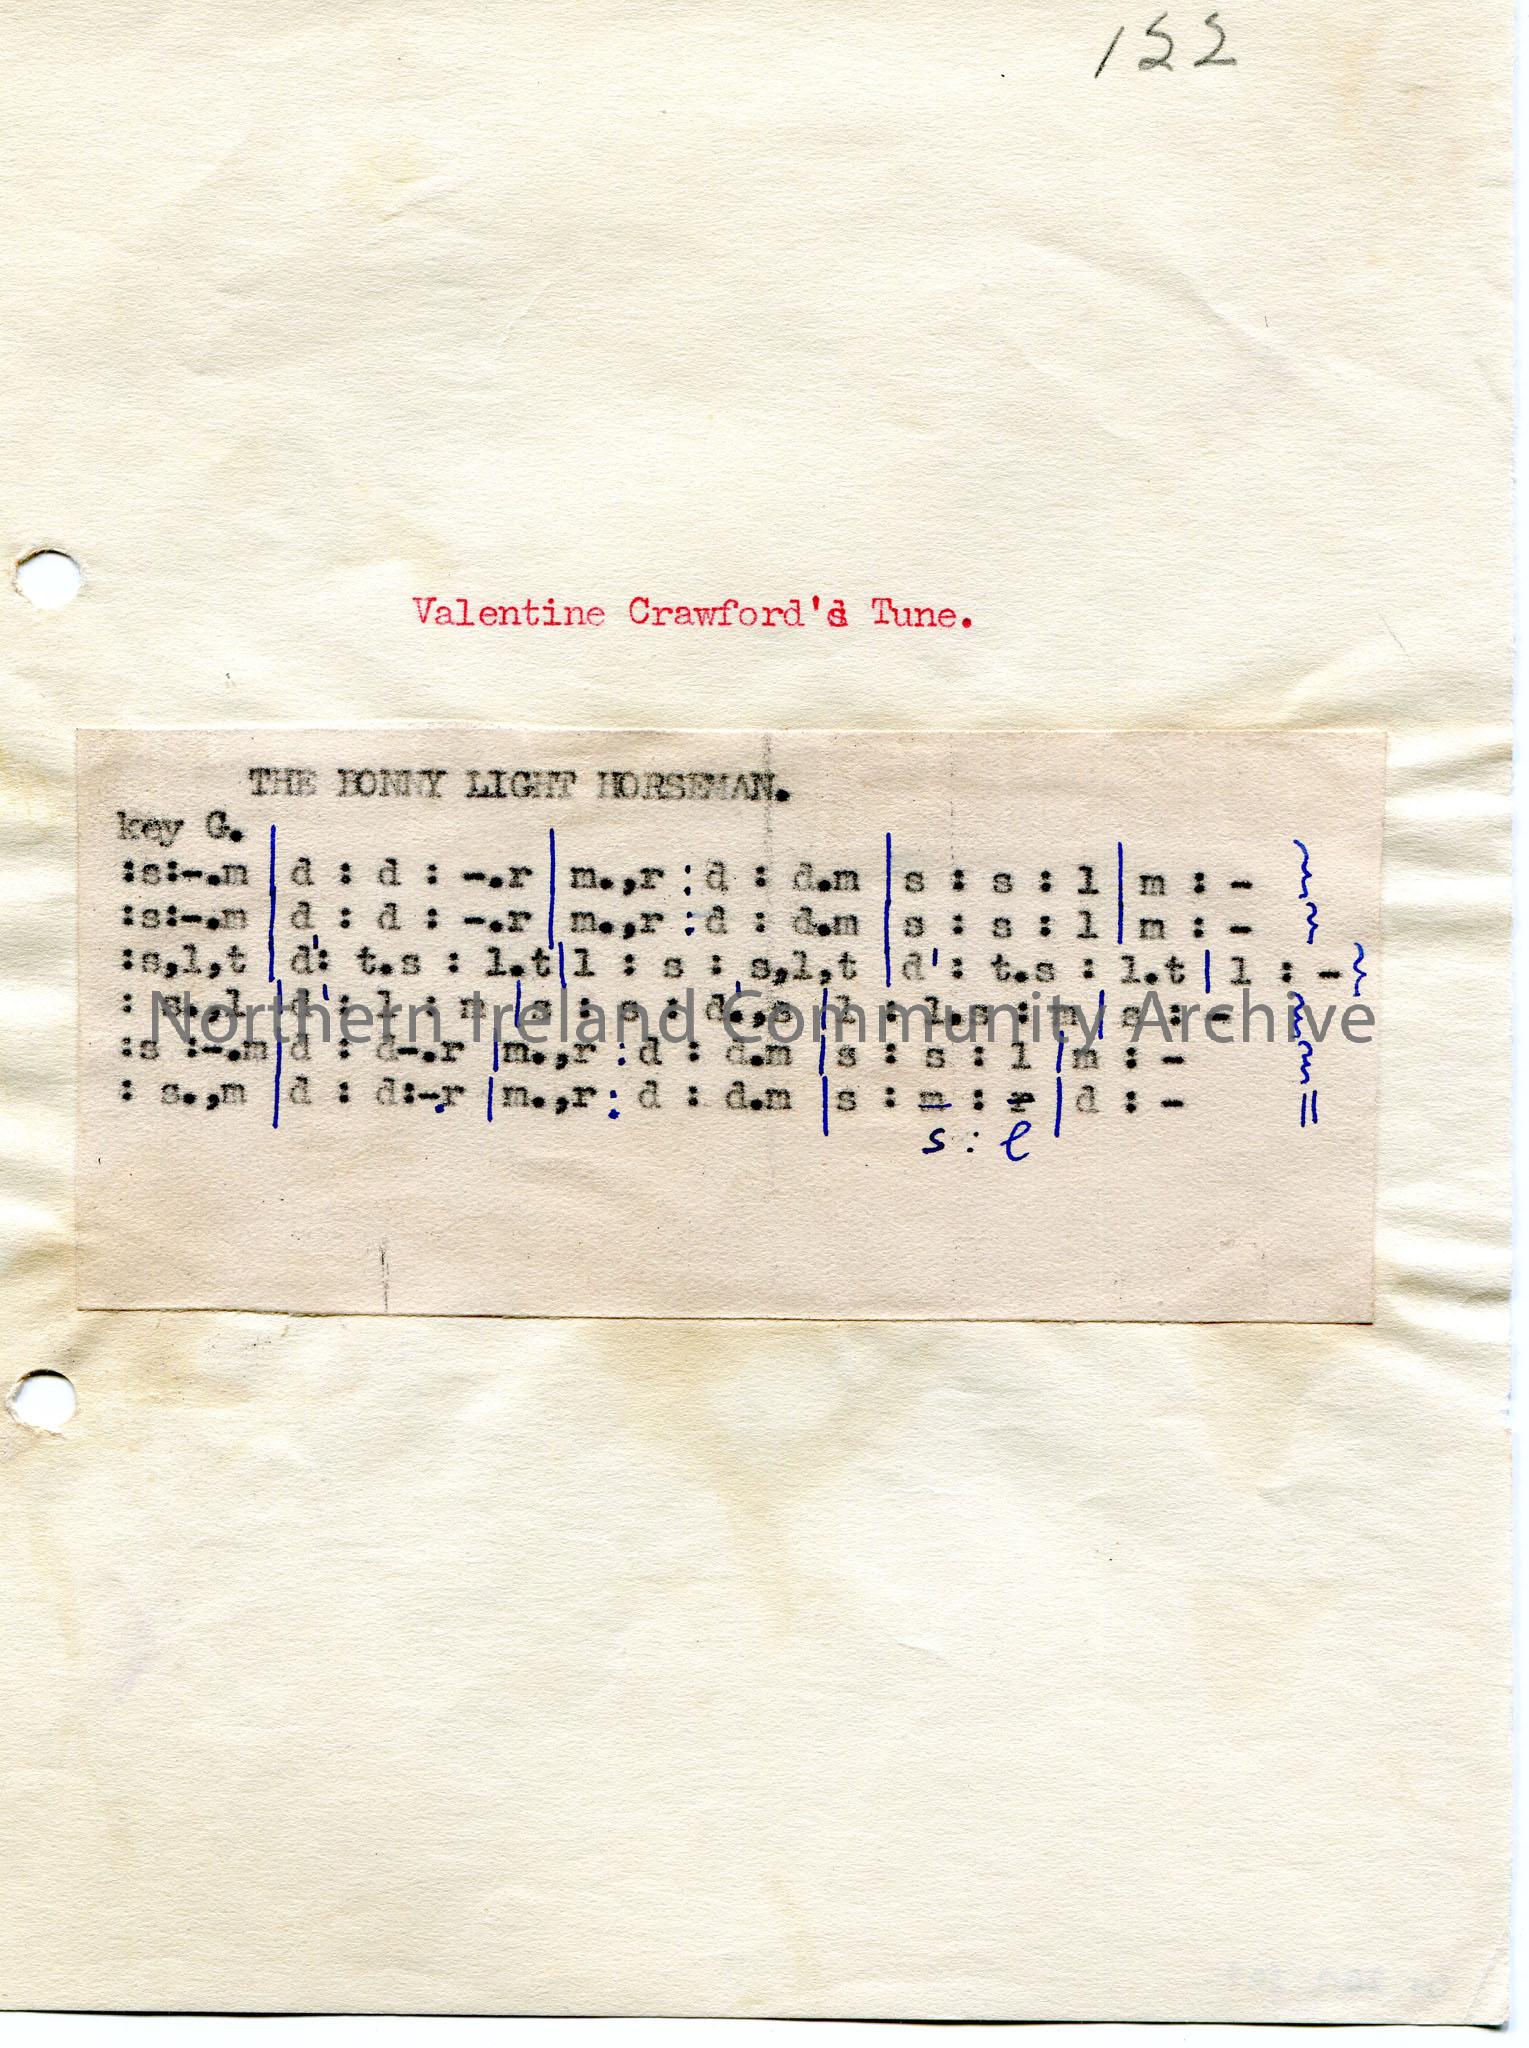 122
Valentine Crawford's Tune.
THE BONNY LIGHT HORSEMAN.
key G.
:s:-.m | d : d : -.r | m.,r : d : d.m | s : s : l | m : - }
:s:-.m | d : d : -.r | m.,r : d : d.m | s : s : l | m : - }
:s,l,t | d': t.s : l.t | l : s : s,l,t | d' : t.s : l.t | l : - }
: s.,l | d' : l : m | s : s : d'.,s | l : l.s : m | s : - }
:s :-.m | d : d-.r | m.,r : d : d.m | s : s : l | m : - }
: s.,m | d : d:-.r | m.,r : d : d.m | s : m : r | d : - ||
s : l
Northern Ireland Community Archive